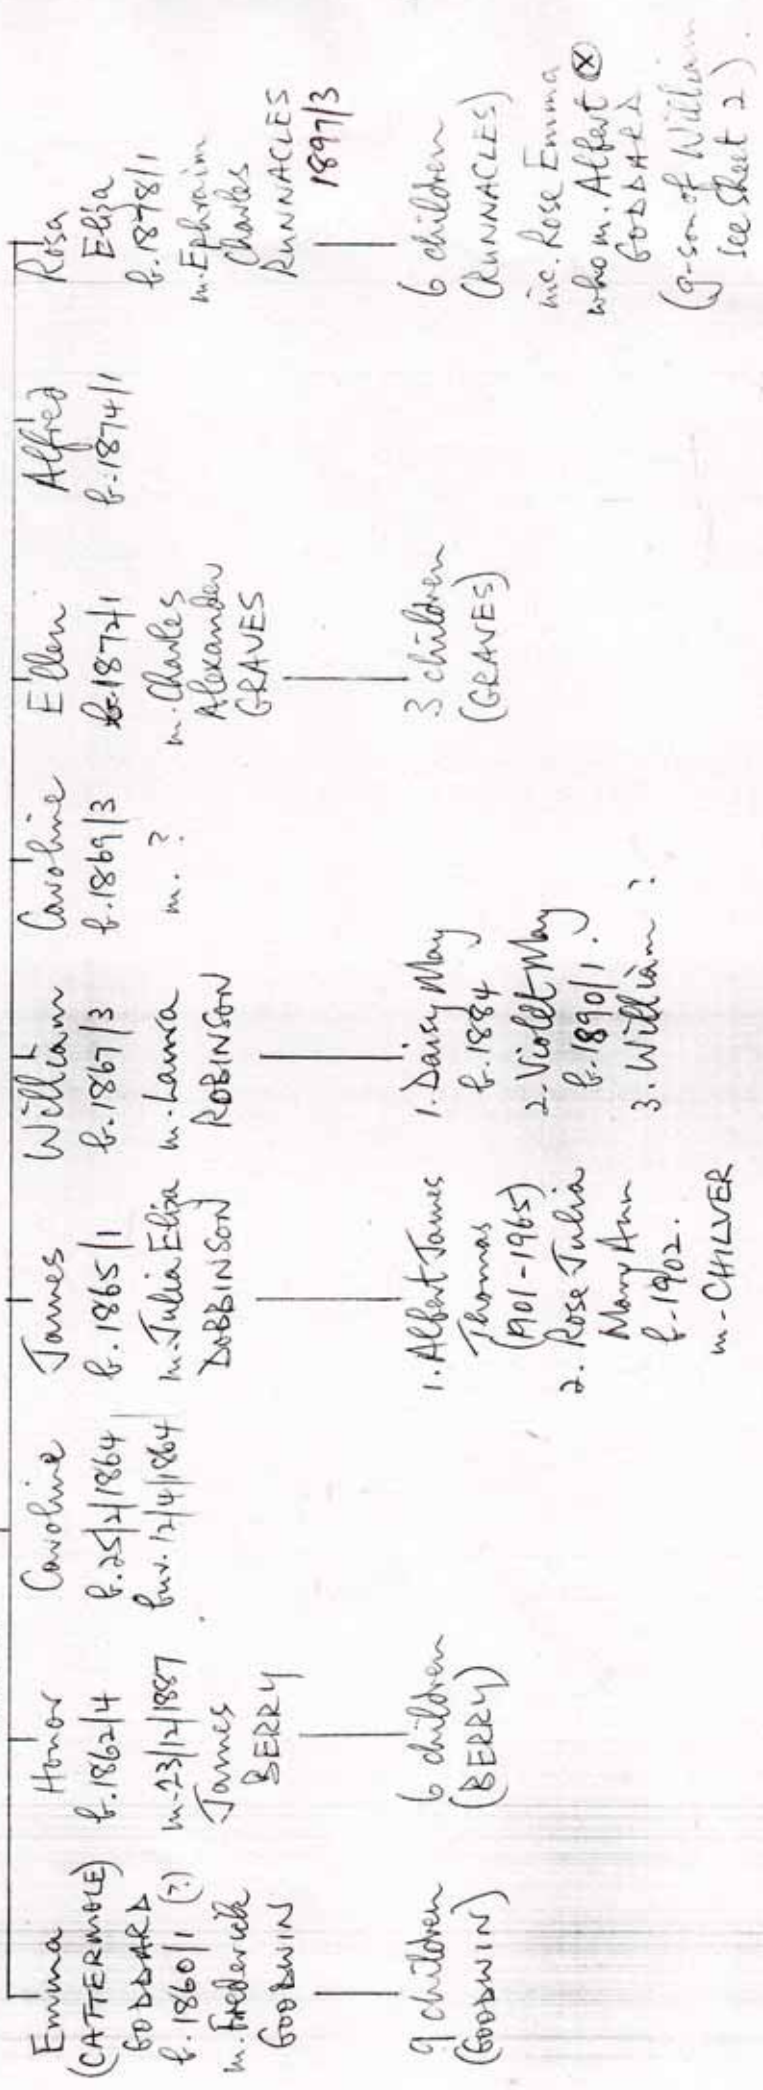 Emma
(CATTERMOLE)
GODDARD
b. 1860/1 (?)
m. Frederick
GOODWIN
9 children
(GOODWIN)
Honor
b. 1862/4
m. 23/12/1887
James
BERRY
6 children
(BERRY)
Caroline
b. 25/2/1864
bur. 12/4/1864
James
b. 1865/1
m. Julia Eliza
DOBBINSON
1. Albert James
Thomas
(1901-1965)
2. Rose Julia
Mary Ann
b. 1902.
m. CHILVER
William
b. 1867/3
m. Laura
ROBINSON
1. Daisy May
b. 1884
2. Violet May
b. 1890/1.
3. William?
Caroline
b. 1869/3
m. ?
Ellen
b. 1872/1
m. Charles
Alexander
GRAVES
3 children
(GRAVES)
Alfred
b. 1874/1
Rosa
Eliza
b. 1878/1
m. Ephraim
Charles
RUNNACLES
1897/3
6 children
(RUNNACLES)
inc. Rose Emma
who m. Albert ⊗
GODDARD
(g-son of William
see sheet 2).